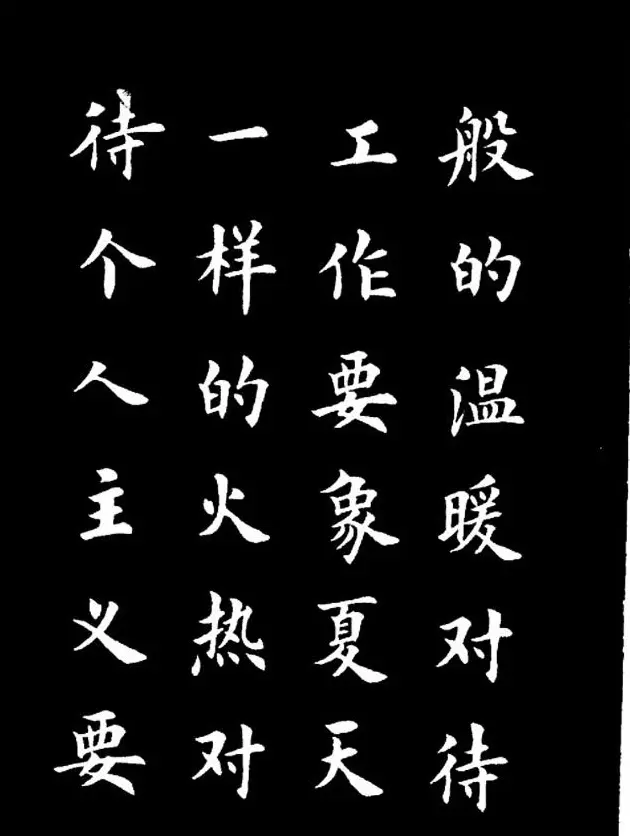 般的温暖对待
工作要象夏天
一样的火热对
待个人主义要